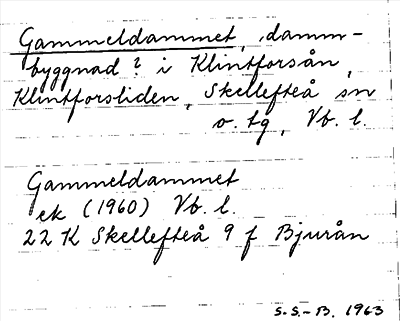 Gammeldammet, damm-
byggnad? i Klintforsån,
Klintforsliden, Skellefteå sn
o. tg, Vb. l.
Gammeldammet
ek (1960) Vb. l.
22 K Skellefteå 9 f Bjurån
S.S.-B. 1963